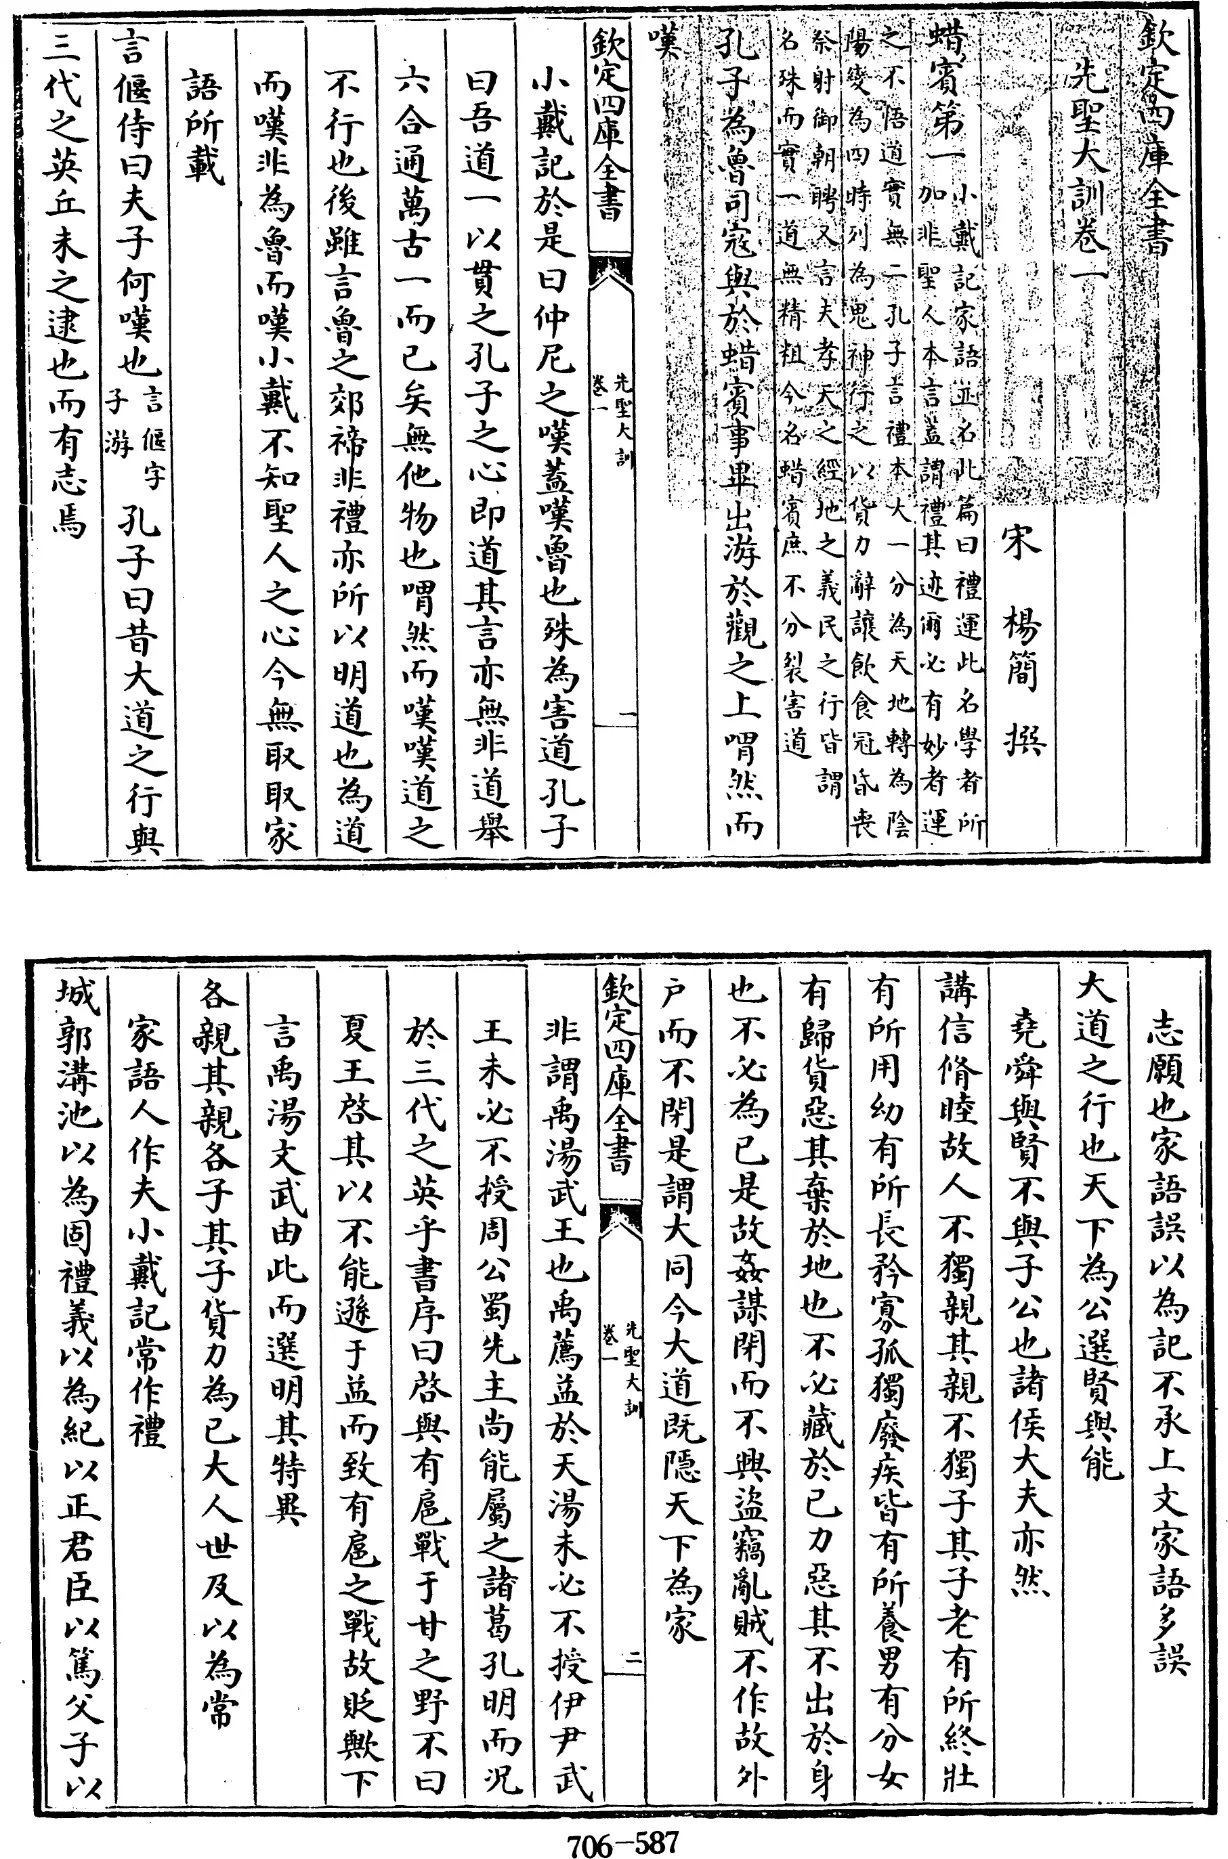 欽定四庫全書
先聖大訓卷一
宋 楊簡 撰
蜡賓第一 小戴記家語並名此篇曰禮運此名學者所
加非聖人本言蓋謂禮其迹爾必有妙者運
之不悟道實無二孔子言禮本大一分為天地轉為陰
陽變為四時列為鬼神行之以貨力辭讓飲食冠昏喪
祭射御朝聘又言夫孝天之經地之義民之行皆謂
名殊而實一道無精粗今名蜡賓庶不分裂害道
孔子為魯司寇與於蜡賓事畢出游於觀之上喟然而
嘆
欽定四庫全書
先聖大訓
卷一
一
小戴記於是曰仲尼之嘆蓋嘆魯也殊為害道孔子
曰吾道一以貫之孔子之心即道其言亦無非道舉
六合通萬古一而已矣無他物也喟然而嘆嘆道之
不行也後雖言魯之郊禘非禮亦所以明道也為道
而嘆非為魯而嘆小戴不知聖人之心今無取取家
語所載
言偃侍曰夫子何嘆也 言偃字
子游
孔子曰昔大道之行與
三代之英丘未之逮也而有志焉
志願也家語誤以為記不承上文家語多誤
大道之行也天下為公選賢與能
堯舜與賢不與子公也諸侯大夫亦然
講信脩睦故人不獨親其親不獨子其子老有所終壯
有所用幼有所長矜寡孤獨廢疾皆有所養男有分女
有歸貨惡其棄於地也不必藏於己力惡其不出於身
也不必為己是故姦謀閉而不興盜竊亂賊不作故外
户而不閉是謂大同今大道既隱天下為家
欽定四庫全書
先聖大訓
卷一
二
非謂禹湯武王也禹薦益於天湯未必不授伊尹武
王未必不授周公蜀先主尚能屬之諸葛孔明而況
於三代之英乎書序曰啓與有扈戰于甘之野不曰
夏王啓其以不能遜于益而致有扈之戰故貶歟下
言禹湯文武由此而選明其特異
各親其親各子其子貨力為己大人世及以為常
家語人作夫小戴記常作禮
城郭溝池以為固禮義以為紀以正君臣以篤父子以
706-587